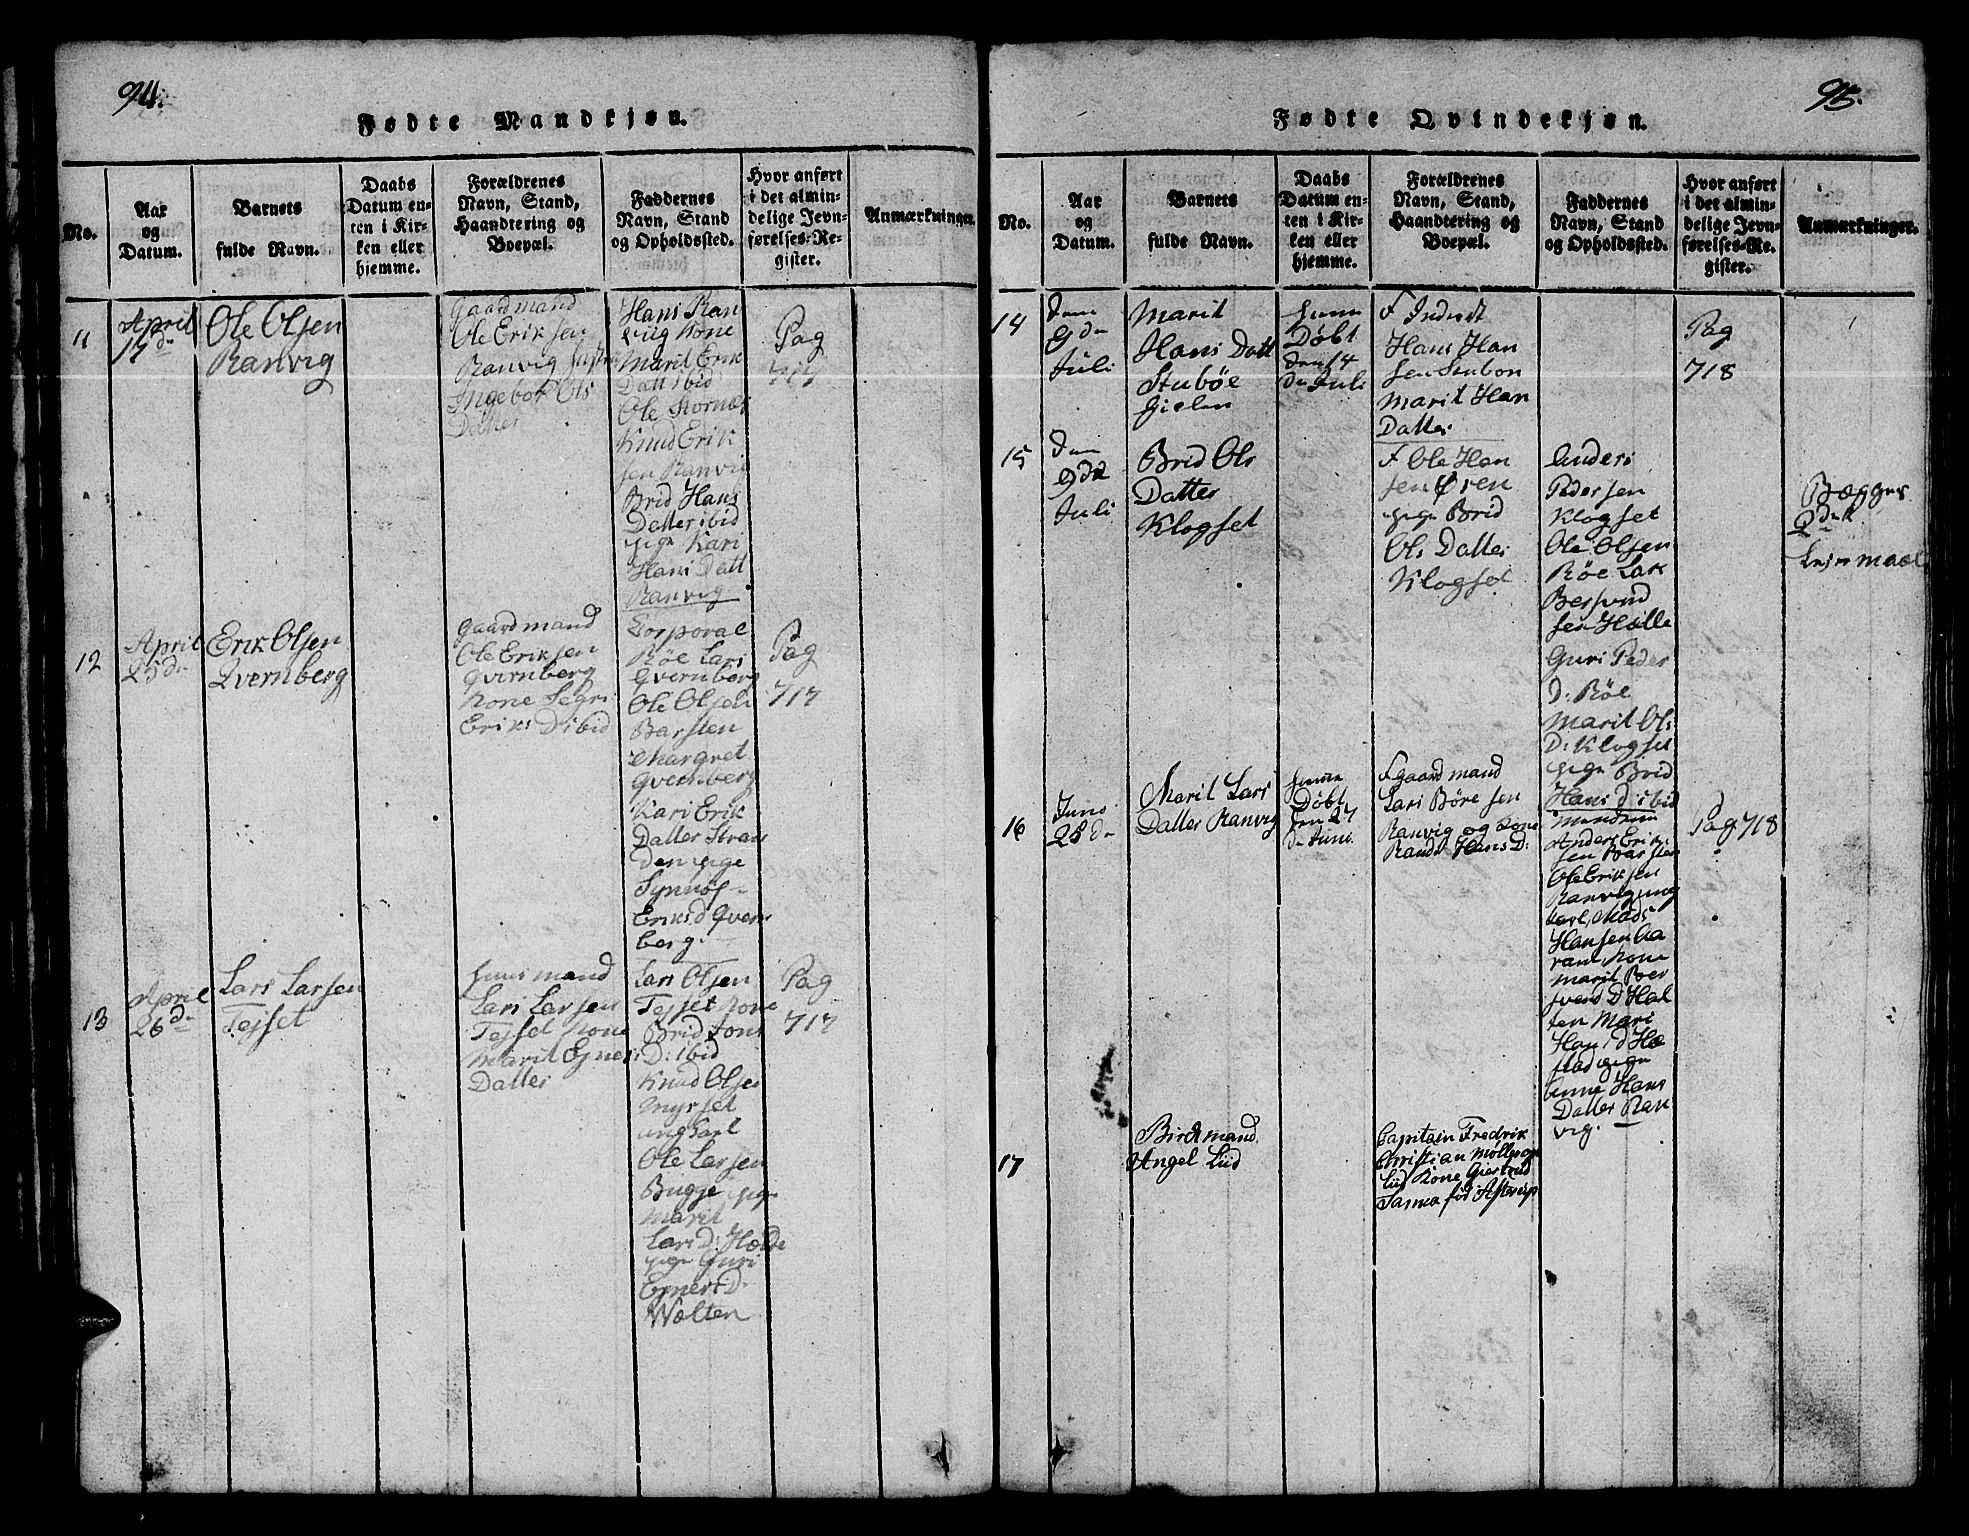 94.
Fødte Mandkjøn.
No.
Aar
og
Datum.
Barnets
fulde Navn.
Daabs
Datum en-
ten i Kir-
ken eller
hjemme.
Forældrenes
Navn, Stand,
Haandtering og
Boepæl.
Faddernes
Navn, Stand
og Opholdssted.
Hvor anført
i det almin-
delige Jevn-
førelses-Re-
gister.
Anmærkninger.
11
April
17de
Ole Olsen
Ranvig
Gaardmand
Ole Eriksen
Ranvig
Ingebor Ols
Datter
Hans Ran
viig Kone
Marit Erik
Datt ibid
Ole Stornæs
Knud Erik
sen Ranvig
Brid Hans
Datter ibid
pige Kari
Hans Datt
Ranvig
Pag
717
12
April
25de
Erik Olsen
Qvernberg
Gaardmand
Ole Eriksen
Qvernberg
Kone Segri
Eriks D ibid
Corporal
Røe Lars
Qvernberg
Ole Olsen
Barsten
Margret
Qvernberg
Kari Erik
Datter Stran
den pige
Synnøf
Eriksd Qvern
berg.
Pag
717
13
April
26de
Lars Larsen
Tejset
Huusmand
Lars Larsen
Tejset Kone
Marit Ejners
Datter
Lars Olsen
Tejset Kone
Brid Jons
D: ibid
Knud Olsen
Myrset
ungkarl
Ole Larsen
Bugge pige
Marit
Lars D: Hoelde
pige Guri
Ejners D:
Wolten
Pag
717
95.
Fødte Qvindekjøn.
No.
Aar
og
Datum.
Barnets
fulde Navn.
Daabs
Datum en-
ten i Kir-
ken eller
hjemme.
Forældrenes
Navn, Stand,
Haandtering og
Boepæl.
Faddernes
Navn, Stand
og Opholdssted.
Hvor anført
i det almin-
delige Jevn-
førelses-Re-
gister.
Anmærkninger.
14
den
9de
Juli
Marit
Hans Datt
Stubøe
hiem
Døbt
den 14
de Juli
F Inderst
Hans Han
sen Stubøe
Marit Han
Datter
Pag
718
15
den
9de
Juli
Brid Ols
Datter
Klogset
F Ole Han
sen Øren
pige Brid
Ols Datter
Klogset
Anders
Pedersen
Klogset
Ole Olsen
Røe Lars
Bersvend
sen Hælle
Guri Peder
D: Røe
Marit Ols
D: Klogset
pige Brid
Hans D: ibid
Begges
2det
Lejermaal
16
Juni
25de
Marit Lars
Datter Ranvig
hjemme
Døbt
den 27
de Juni.
F gaardmand
Lars Børesen
Ranvig og Kone
Randi Hans D:
Anders Erik-
sen Barsten
Ole Eriksen
Ranvig ung
karl, Mads
Hansen Aa
ram, Kone
Marit Ber
svend D Hal
ten Mari
Hans d Hæ
stad pige
Anne Hans
Datter Ran
vig.
Pag 718
17
Birchmand
Angel Lüd
Capitain Fredrik
Christian Møller
Lüd Kone Giertrud
Sanna fød Asterup